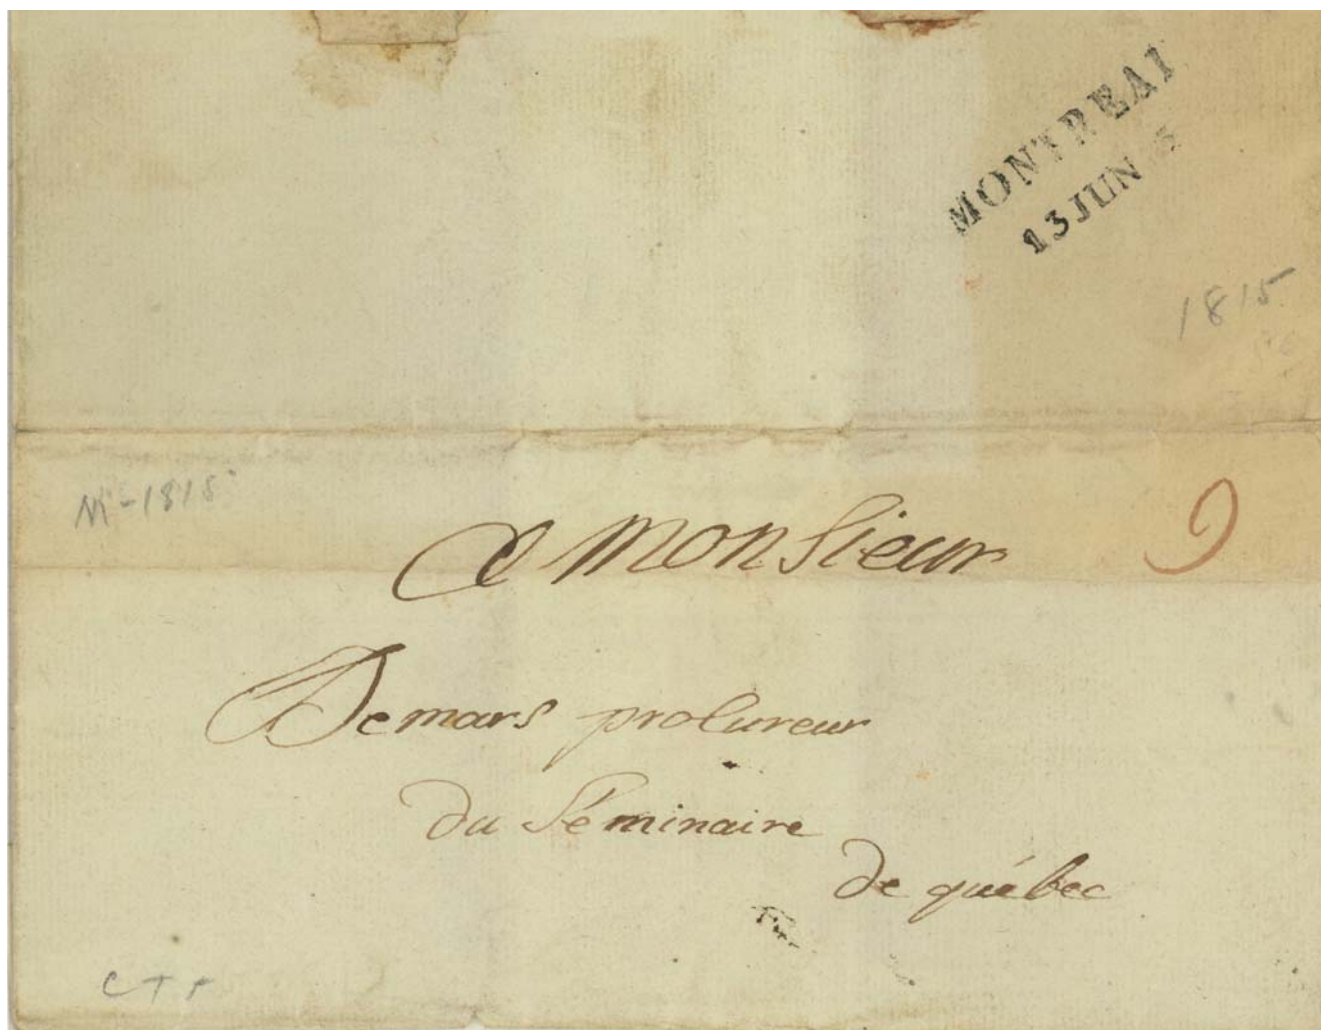 MONTREAL
13 JUN 5
1815
M-1815
9
a monsieur
Demars procureur
du Séminaire
de québec